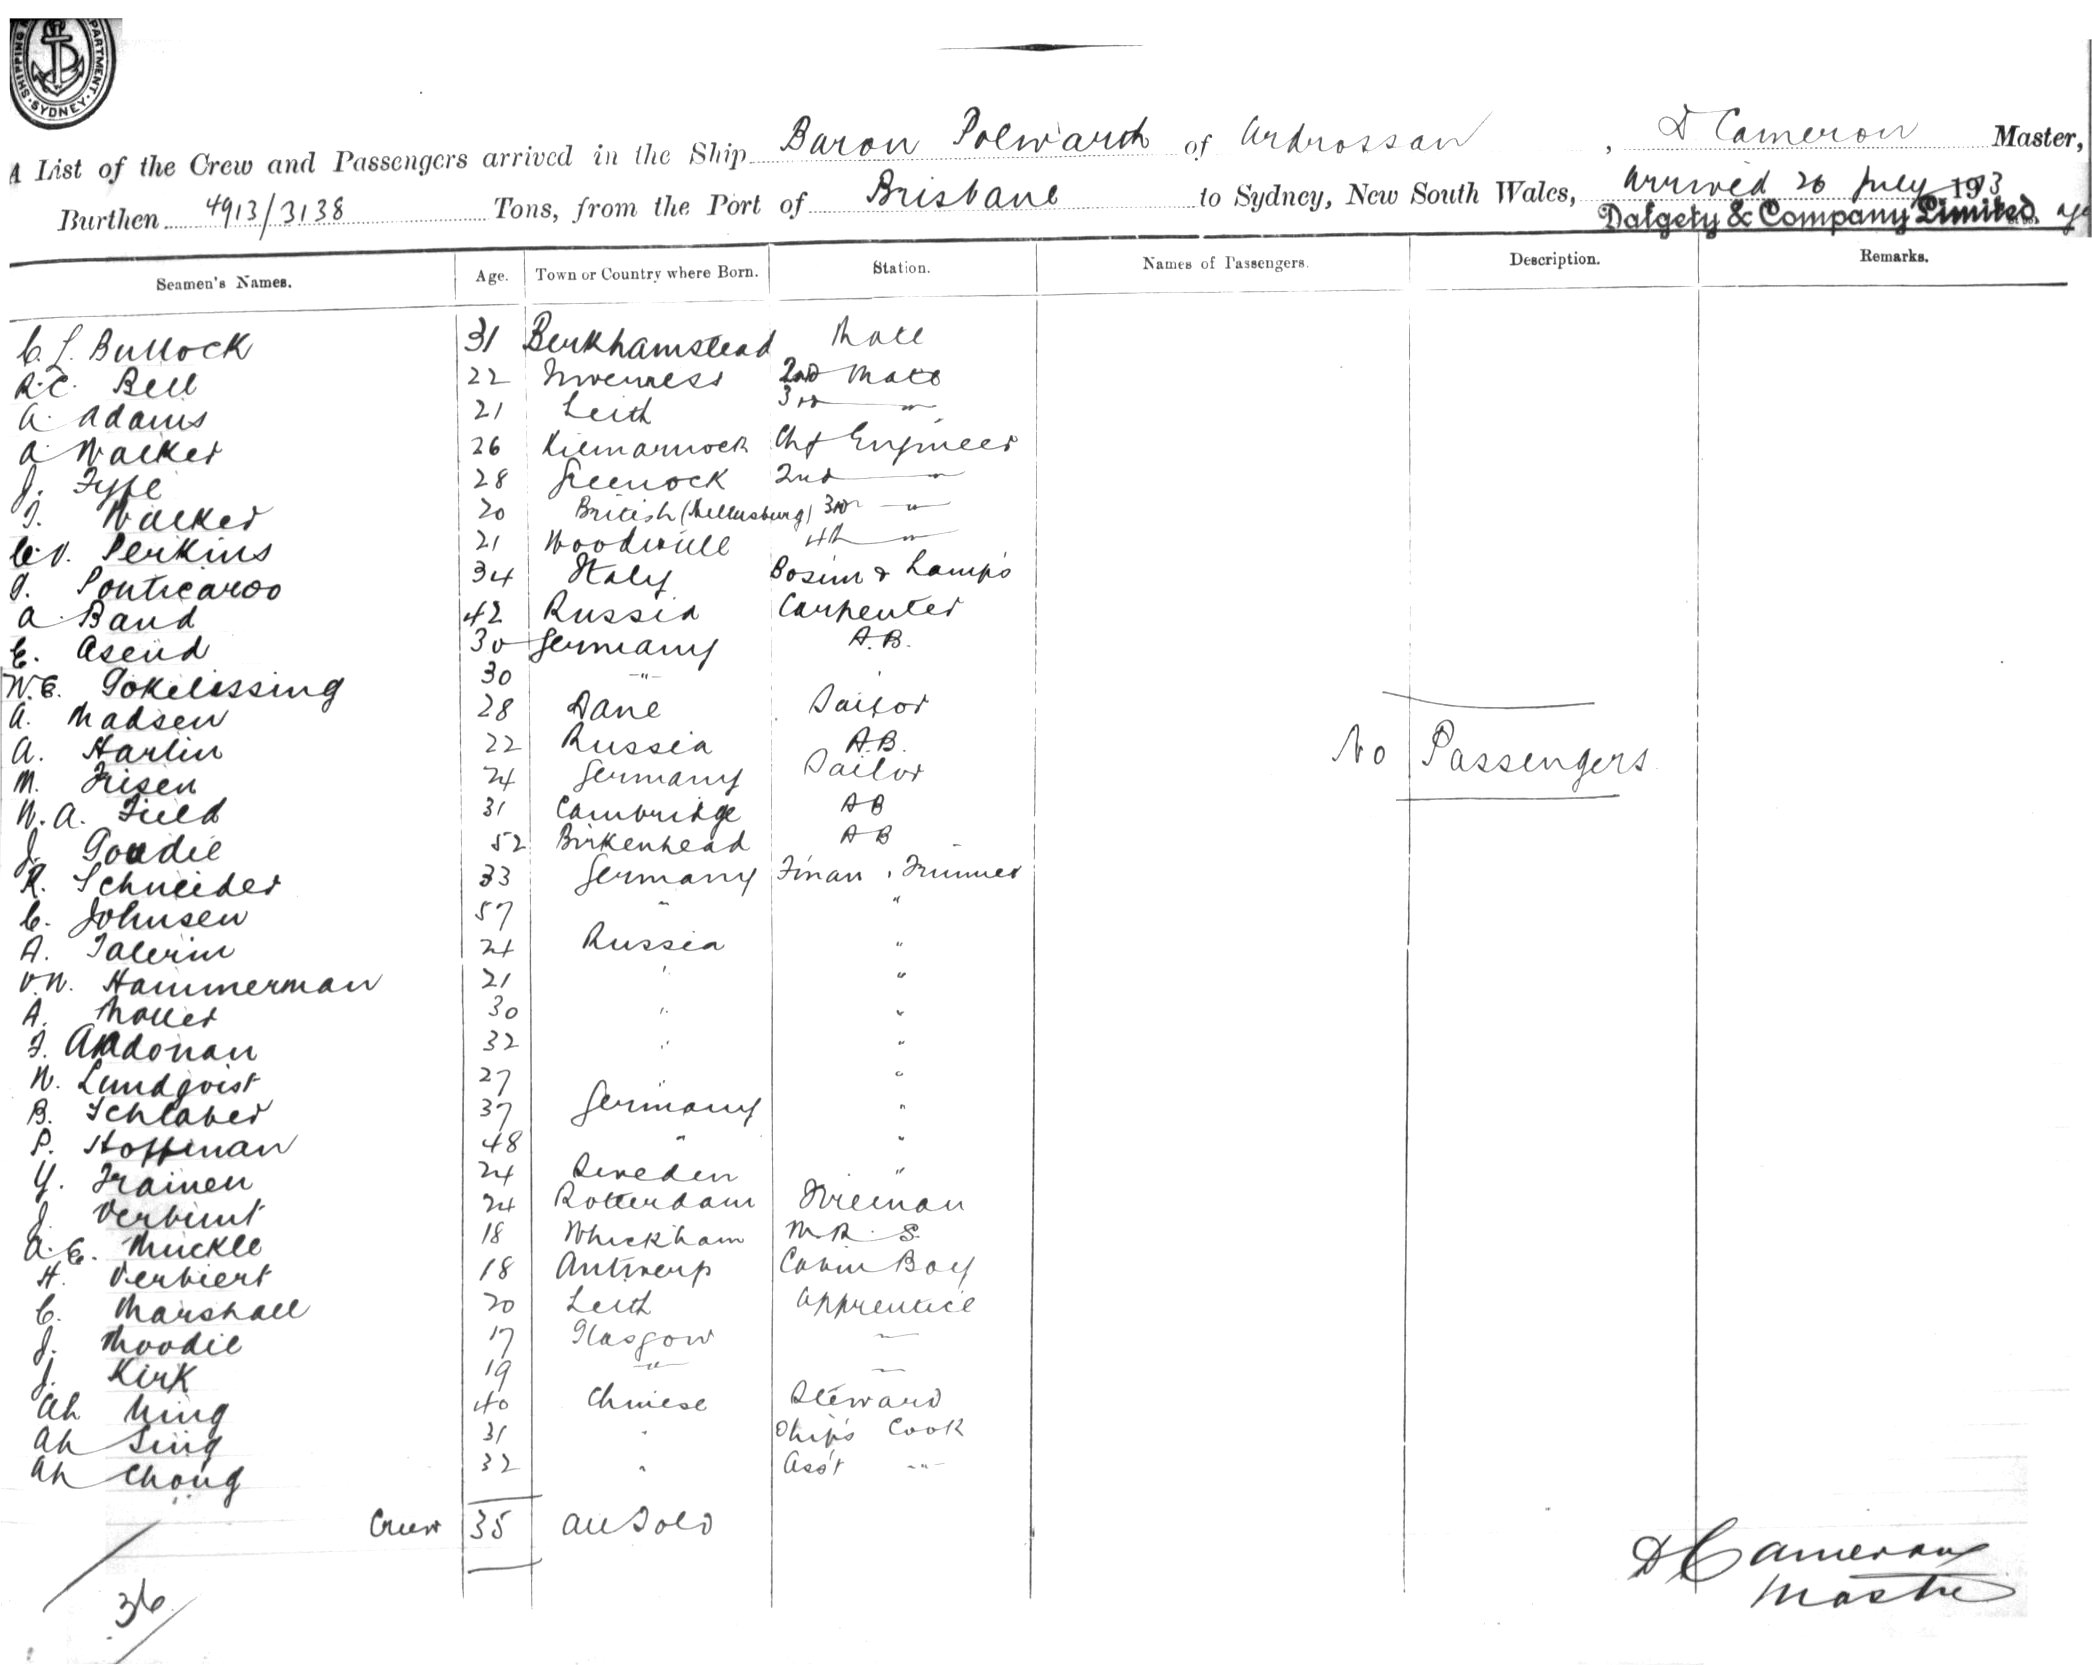 SHIPPING DEPARTMENT. SYDNEY.
A List of the Crew and Passengers arrived in the Ship Baron Polwarth of Ardrossan, D Cameron Master,
Burthen 4913/3138 Tons, from the Port of Brisbane to Sydney, New South Wales, Arrived 26 July 1913
Dalgety & Company Limited.
Seamen's Names. Age. Town or Country where Born. Station. Names of Passengers. Description. Remarks.
C. J. Bullock 31 Berkhamstead Mate
R.C. Bell 22 Inverness 2nd Mate
A. Adams 21 Leith 3rd "
A Walker 26 Kilmarnock Chf Engineer
J. Fyfe 28 Greenock 2nd "
T. Walker 20 British 3rd "
C.V. Perkins 21 Woodville 4th "
34 Italy Bosun & Lamps
A. Band 42 Russia Carpenter
E. Asend 30 Germany A.B.
W.E. 30 "
A. Madsen 28 Dane Sailor
A. Harlin 22 Russia A.B.
M. Frisen 24 Germany Sailor
W. A. Field 31 Cambridge AB
J. Goudie 52 Birkenhead AB
R. Schneider 33 Germany F'man & Trimmer
C. Johnsen 57 " "
A. Talerin 24 Russia "
V.W. Hammerman 21 " "
A. Moller 30 " "
32 " "
W. Lundqvist 27 " "
B. Schlaber 37 Germany "
P. Hoffman 48 " "
Y. Frainen 24 Sweden "
J. 24 Rotterdam Fireman
A. E. Muckle 18 Whickham M. R. S.
H. Verbiert 18 Antwerp Cabin Boy
C. Marshall 20 Leith Apprentice
J. Moodie 17 Glasgow "
J. Kirk 19 " "
Ah Ming 40 Chinese Steward
Ah Sing 31 " Ship's Cook
Ah Chong 32 " Ass't "
No Passengers
Crew 35 All Told
36
D Cameron
Master